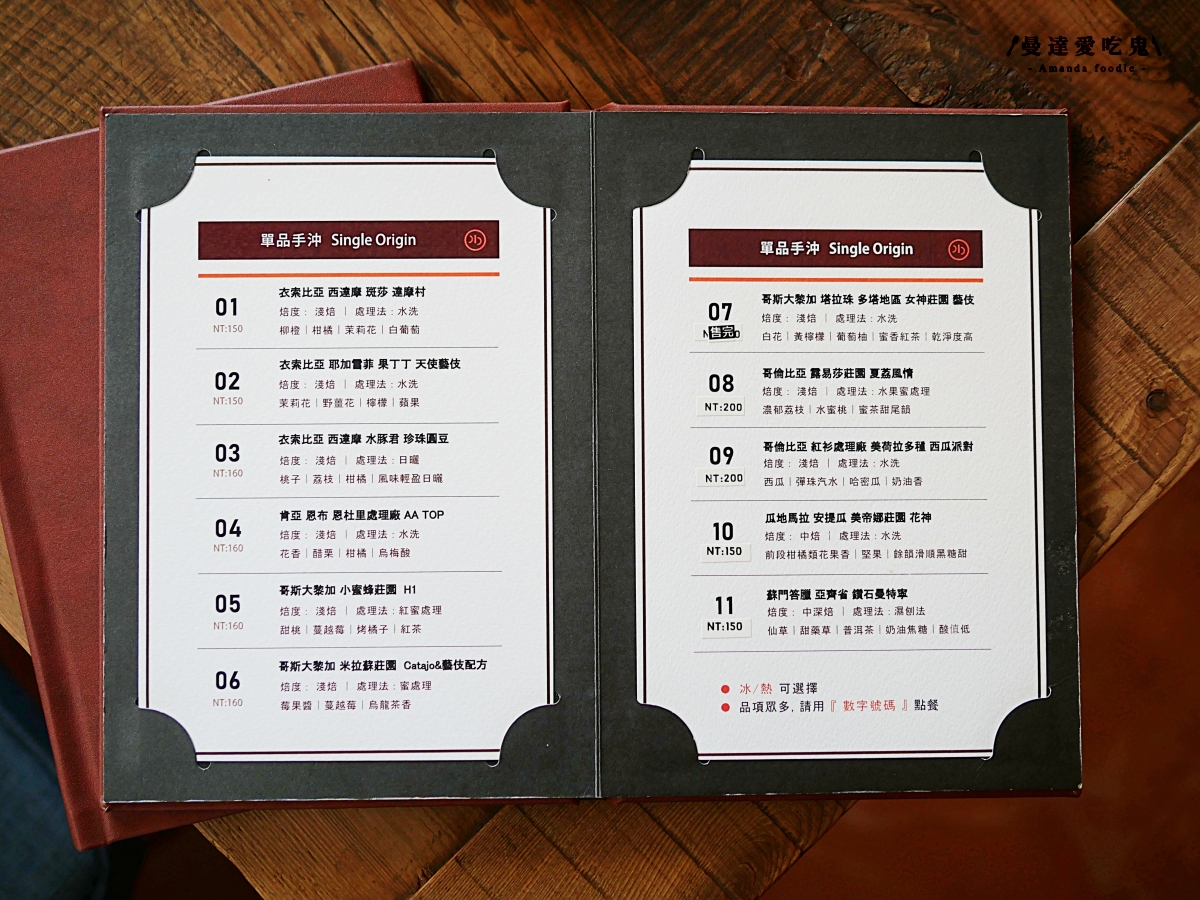 曼達愛吃鬼
- Amanda foodie -
單品手沖 Single Origin
01
NT:150
衣索比亞 西達摩 斑莎 達摩村
焙度： 淺焙 ｜ 處理法：水洗
柳橙｜柑橘｜茉莉花｜白葡萄
02
NT:150
衣索比亞 耶加雪菲 果丁丁 天使藝伎
焙度： 淺焙 ｜ 處理法：水洗
茉莉花｜野薑花｜檸檬｜蘋果
03
NT:160
衣索比亞 西達摩 水豚君 珍珠圓豆
焙度： 淺焙 ｜ 處理法：日曬
桃子｜荔枝｜柑橘｜風味輕盈日曬
04
NT:160
肯亞 恩布 恩杜里處理廠 AA TOP
焙度： 淺焙 ｜ 處理法：水洗
花香｜醋栗｜柑橘｜烏梅酸
05
NT:160
哥斯大黎加 小蜜蜂莊園 H1
焙度： 淺焙 ｜ 處理法：紅蜜處理
甜桃｜蔓越莓｜烤橘子｜紅茶
06
NT:160
哥斯大黎加 米拉蘇莊園 Catajo&藝伎配方
焙度： 淺焙 ｜ 處理法：蜜處理
莓果醬｜蔓越莓｜烏龍茶香
單品手沖 Single Origin
07
售完
哥斯大黎加 塔拉珠 多塔地區 女神莊園 藝伎
焙度： 淺焙 ｜ 處理法：水洗
白花｜黃檸檬｜葡萄柚｜蜜香紅茶｜乾淨度高
08
NT:200
哥倫比亞 露易莎莊園 夏荔風情
焙度： 淺焙 ｜ 處理法：水果蜜處理
濃郁荔枝｜水蜜桃｜蜜茶甜尾韻
09
NT:200
哥倫比亞 紅衫處理廠 美荷拉多種 西瓜派對
焙度： 淺焙 ｜ 處理法：水洗
西瓜｜彈珠汽水｜哈密瓜｜奶油香
10
NT:150
瓜地馬拉 安提瓜 美帝娜莊園 花神
焙度： 中焙 ｜ 處理法：水洗
前段柑橘類花果香｜堅果｜餘韻滑順黑糖甜
11
NT:150
蘇門答臘 亞齊省 鑽石曼特寧
焙度： 中深焙 ｜ 處理法：濕刨法
仙草｜甜藥草｜普洱茶｜奶油焦糖｜酸值低
● 冰/熱 可選擇
● 品項眾多, 請用『 數字號碼 』點餐